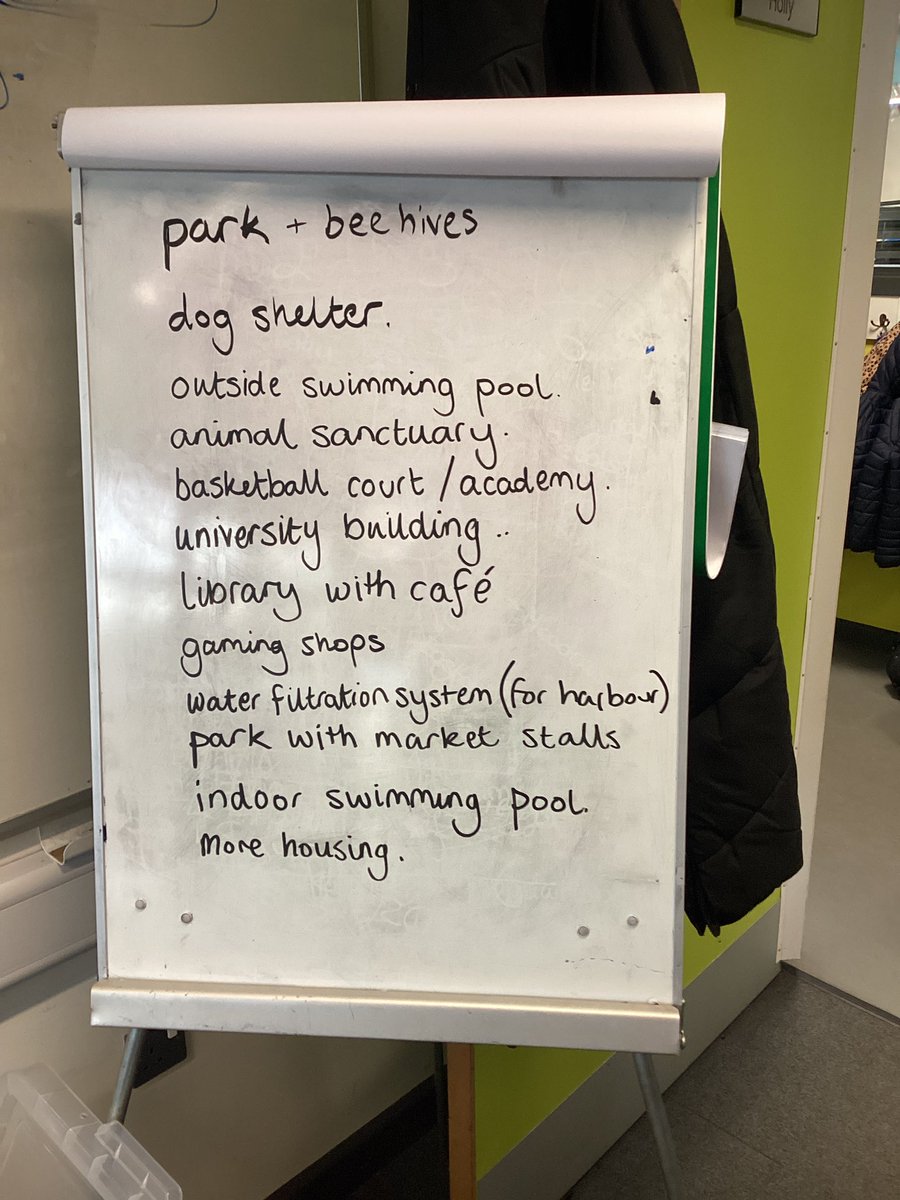 Holly
park + bee hives
dog shelter.
outside swimming pool.
animal sanctuary.
basketball court / academy.
university building ..
library with café
gaming shops
water filtration system (for harbour)
park with market stalls
indoor swimming pool.
More housing.